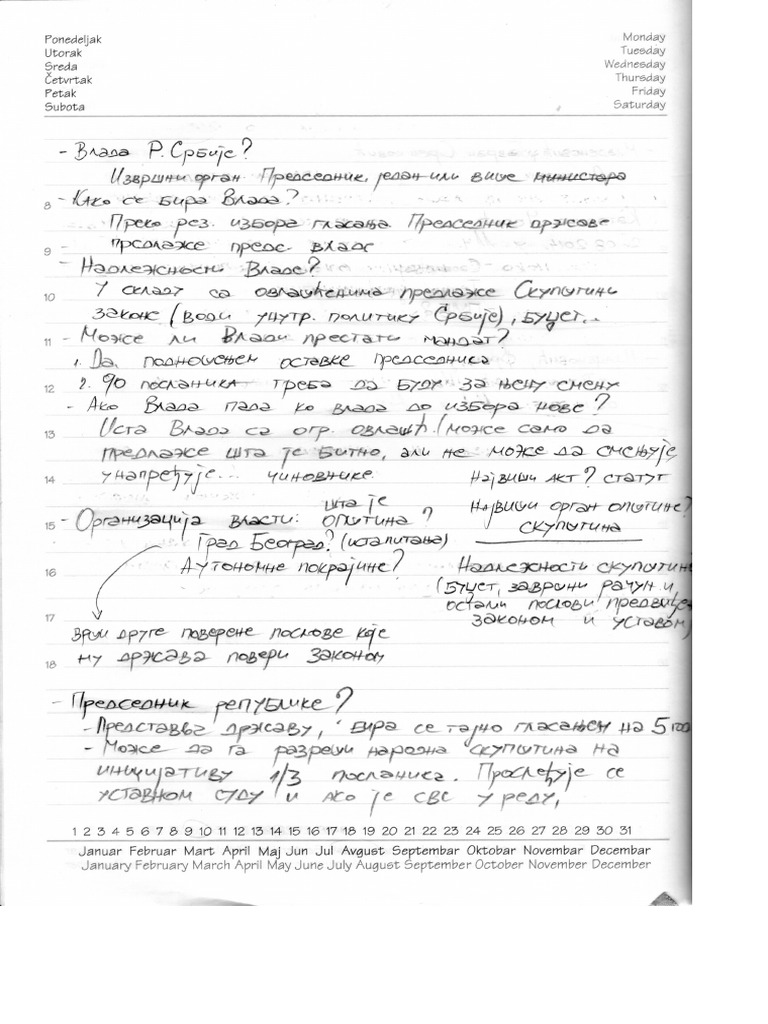 Ponedeljak
Utorak
Sreda
Četvrtak
Petak
Subota
Monday
Tuesday
Wednesday
Thursday
Friday
Saturday
- Влада Р. Србије?
Извршни орган Председник, један или више министара
8 - Како се бира Влада?
Преко рез. избора гласања Председник државе
9 предлаже предс. владе
- Надлежности Владе?
10 У складу са овлашћенима предлаже Скупштини
законе (води унутр. политику Србије), буџет...
11 - Може ли Влади престати мандат?
1. Да, подношењем оставке председника
12 2. 90 посланика треба да буду за њену смену
- Ако Влада пада ко влада до избора нове?
13 Иста Влада са огр. овлашћ. (може само да
предлаже шта је битно, али не може да смењује,
14 унапређује... чиновнике.
Највиши акт? статут
Највиши орган општине?
скупштина
15 - Организација власти: шта је општина?
Град Београд? (иста питања)
16 Аутономне покрајине?
Надлежности скупштин
(Буџет, завршни рачун и
остали послови предвиђе
законом и уставом)
17
врши друге поверене послове које
18 му држава повери Законом
- Председник републике?
- Представља државу, бира се тајно гласањем на 5 год
- Може да га разреши народна скупштина на
иницијативу 1/3 посланика. Прослеђује се
уставном суду и ако је све у реду,
1 2 3 4 5 6 7 8 9 10 11 12 13 14 15 16 17 18 19 20 21 22 23 24 25 26 27 28 29 30 31
Januar Februar Mart April Maj Jun Jul Avgust Septembar Oktobar Novembar Decembar
January February March April May June July August September October November December